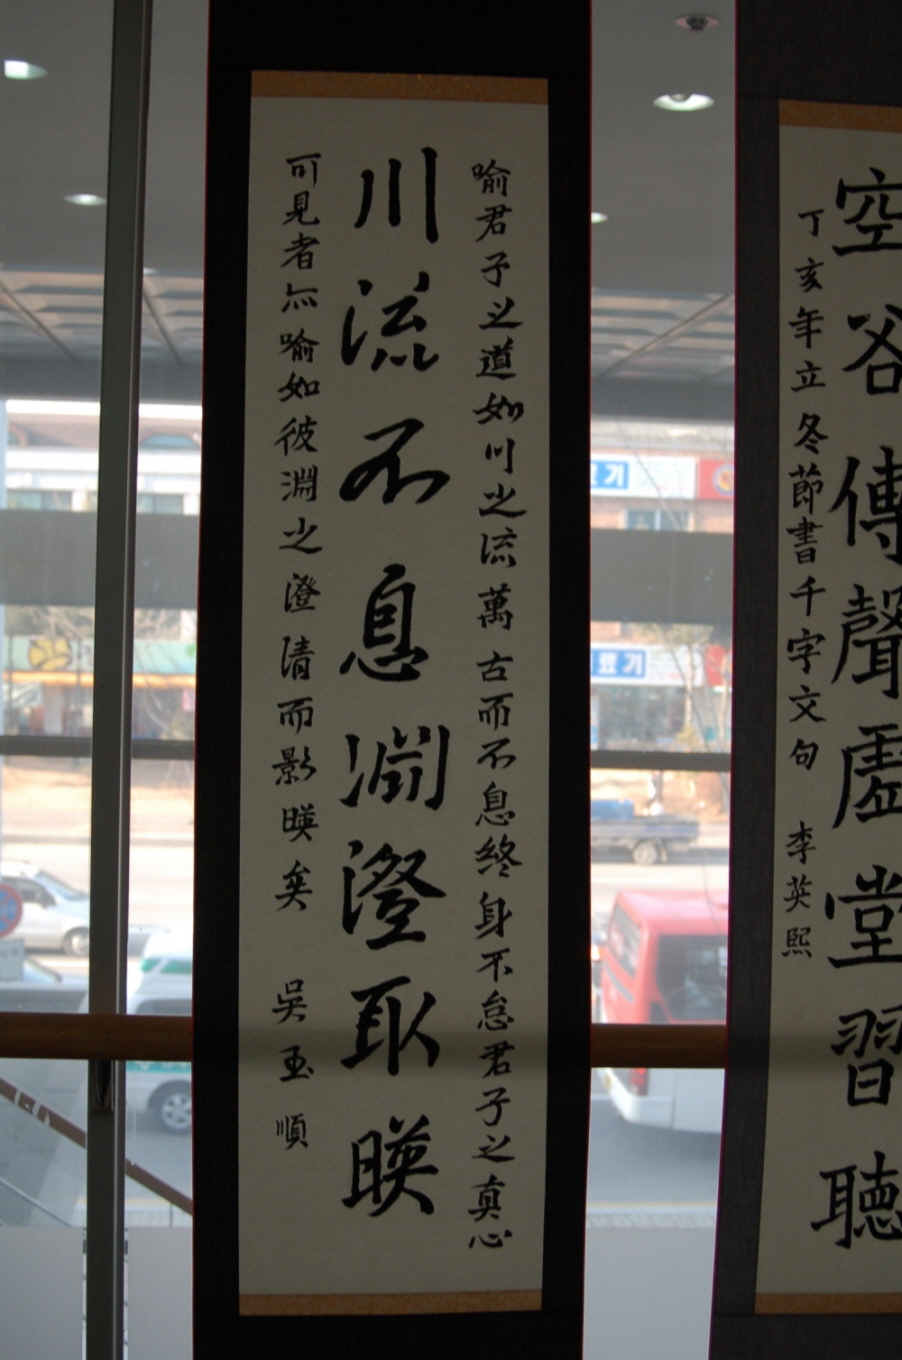 空谷傳聲虛堂習聽
丁亥年立冬節書千字文句 李英熙
喻君子之道如川之流萬古而不息終身不怠君子之真心
川流不息淵澄取暎
可見者亦喻如彼淵之澄清而影暎矣 吳玉順
료기
료기